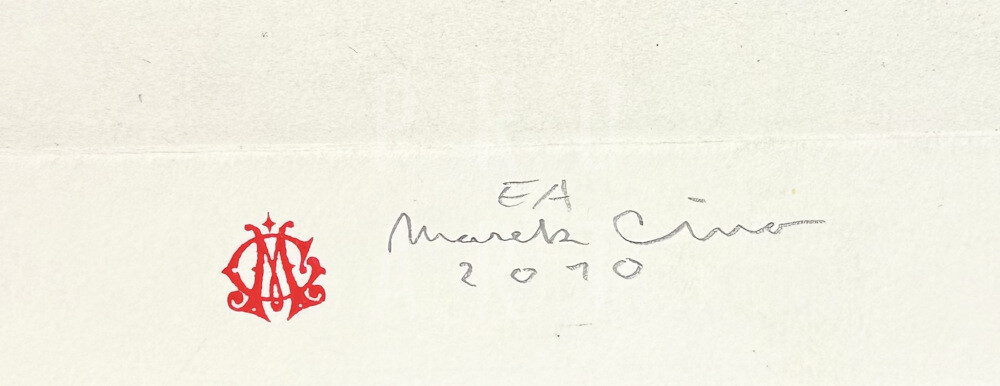 EA
Marek Cina
2010